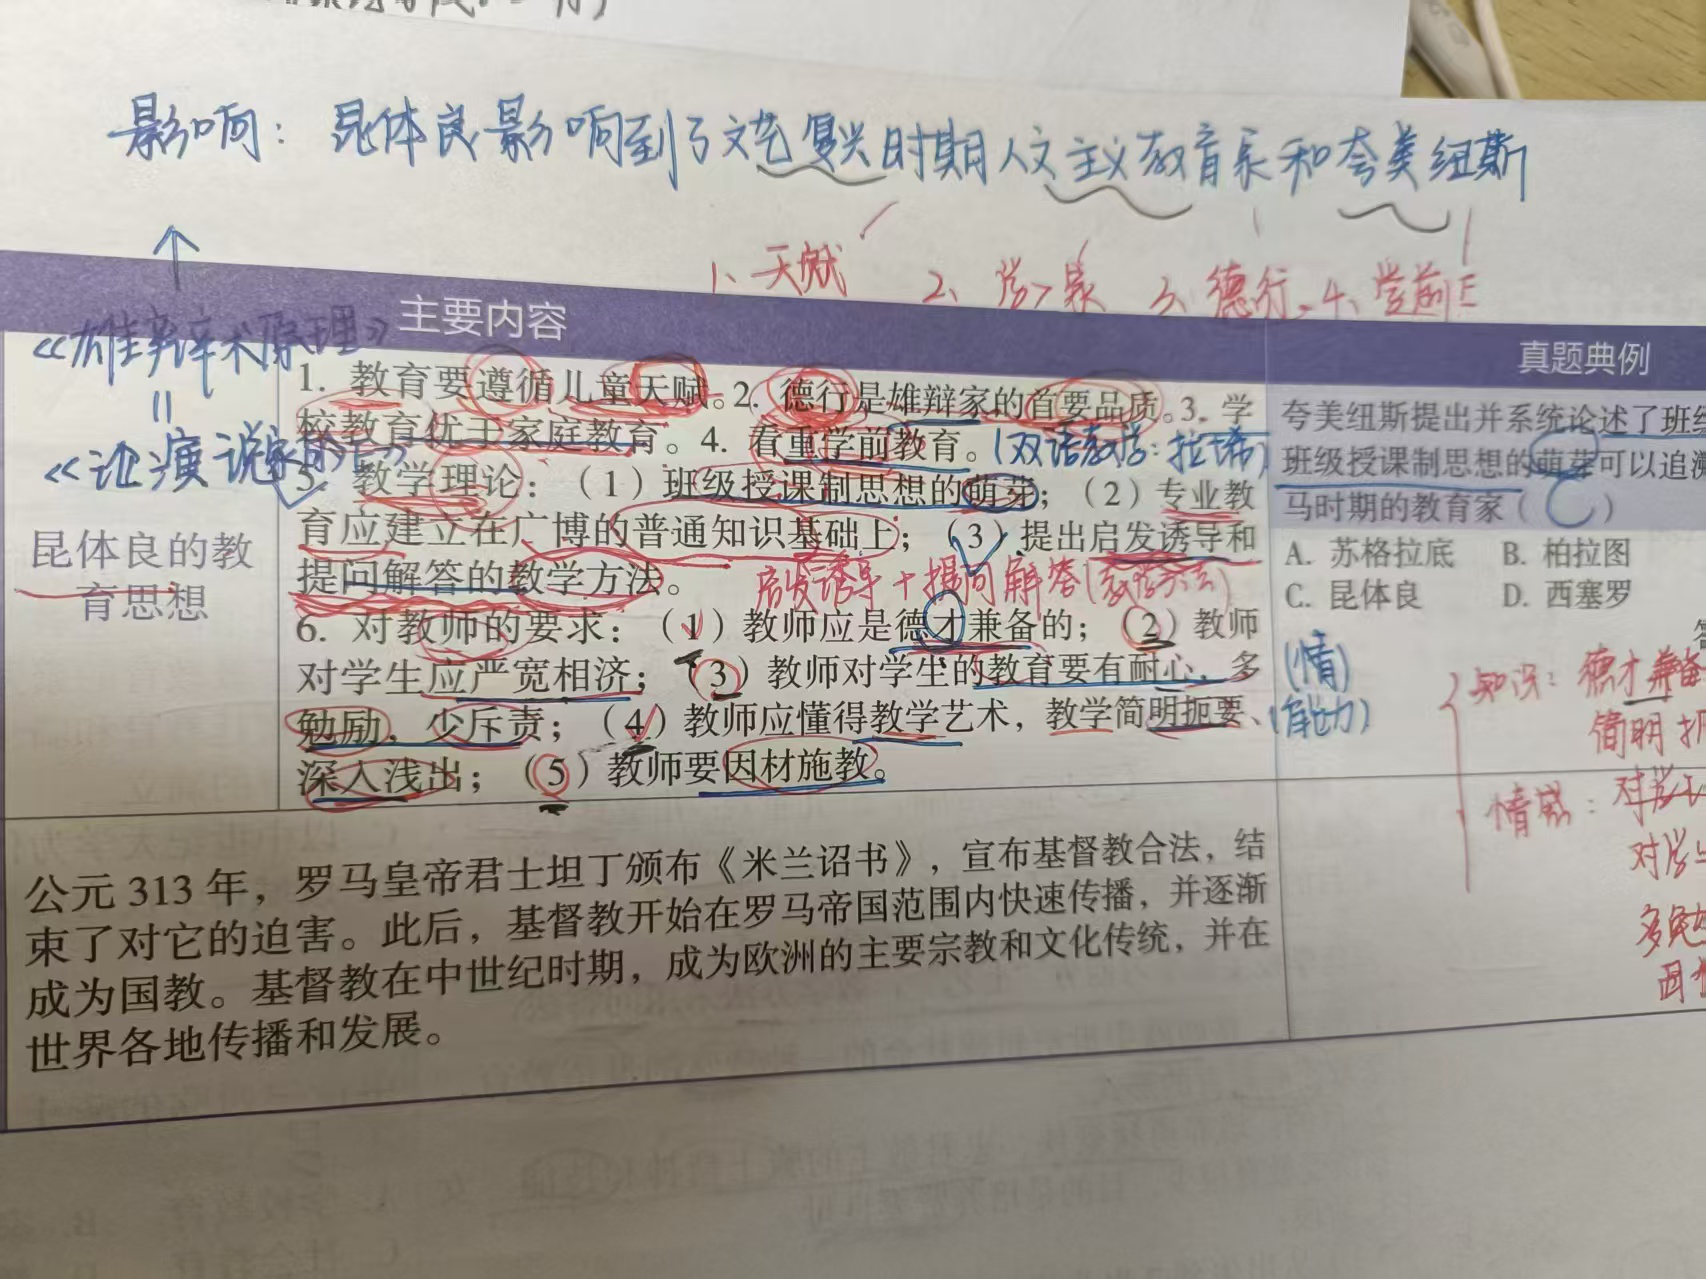 影响：昆体良影响到了文艺复兴时期人文主义教育家和夸美纽斯
1、天赋 2、学>家 3、德行、4、学前
《雄辩术原理》
《论演说家的
主要内容
真题典例
1. 教育要遵循儿童天赋。2. 德行是雄辩家的首要品质。3. 学
校教育优于家庭教育。4. 看重学前教育。(双语教学：拉、希)
5. 教学理论：（1）班级授课制思想的萌芽；（2）专业教
育应建立在广博的普通知识基础上；（3）提出启发诱导和
提问解答的教学方法。
启发诱导＋提问解答(教学方法)
6. 对教师的要求：（1）教师应是德才兼备的；（2）教师
对学生应严宽相济；（3）教师对学生的教育要有耐心，多
勉励，少斥责；（4）教师应懂得教学艺术，教学简明扼要、
深入浅出；（5）教师要因材施教。
昆体良的教
育思想
夸美纽斯提出并系统论述了班级
班级授课制思想的萌芽可以追溯
马时期的教育家（C）
A. 苏格拉底 B. 柏拉图
C. 昆体良 D. 西塞罗
答
(情)
(能力)
知识：德才兼备
简明扼
情感：对学生
对学生
多勉
因材
公元 313 年，罗马皇帝君士坦丁颁布《米兰诏书》，宣布基督教合法，结
束了对它的迫害。此后，基督教开始在罗马帝国范围内快速传播，并逐渐
成为国教。基督教在中世纪时期，成为欧洲的主要宗教和文化传统，并在
世界各地传播和发展。